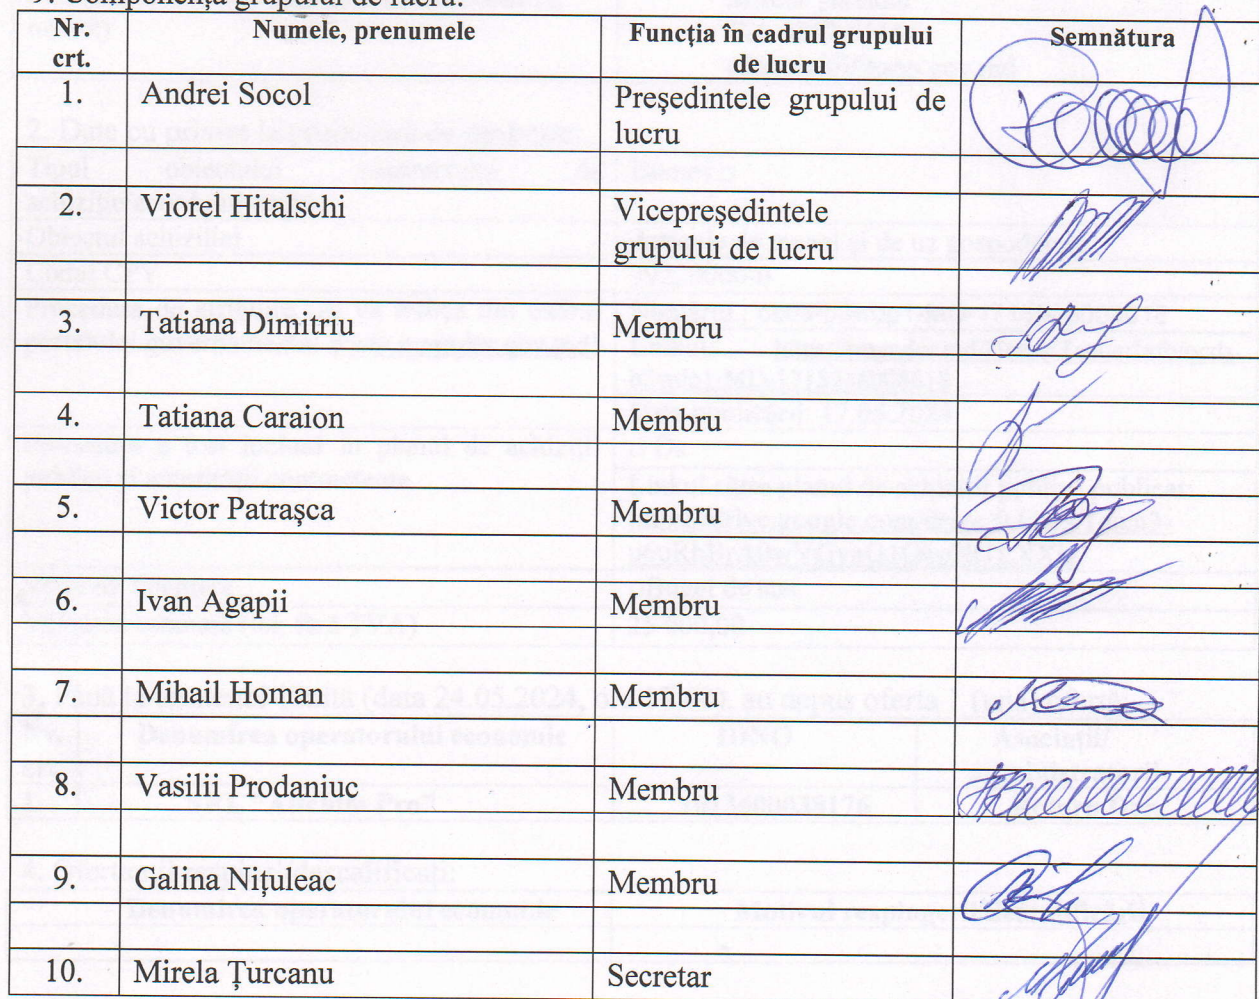 9. Componența grupului de lucru:
Nr. crt. Numele, prenumele Funcția în cadrul grupului de lucru Semnătura
1. Andrei Socol Președintele grupului de lucru
2. Viorel Hitalschi Vicepreședintele grupului de lucru
3. Tatiana Dimitriu Membru
4. Tatiana Caraion Membru
5. Victor Patrașca Membru
6. Ivan Agapii Membru
7. Mihail Homan Membru
8. Vasilii Prodaniuc Membru
9. Galina Nițuleac Membru
10. Mirela Țurcanu Secretar